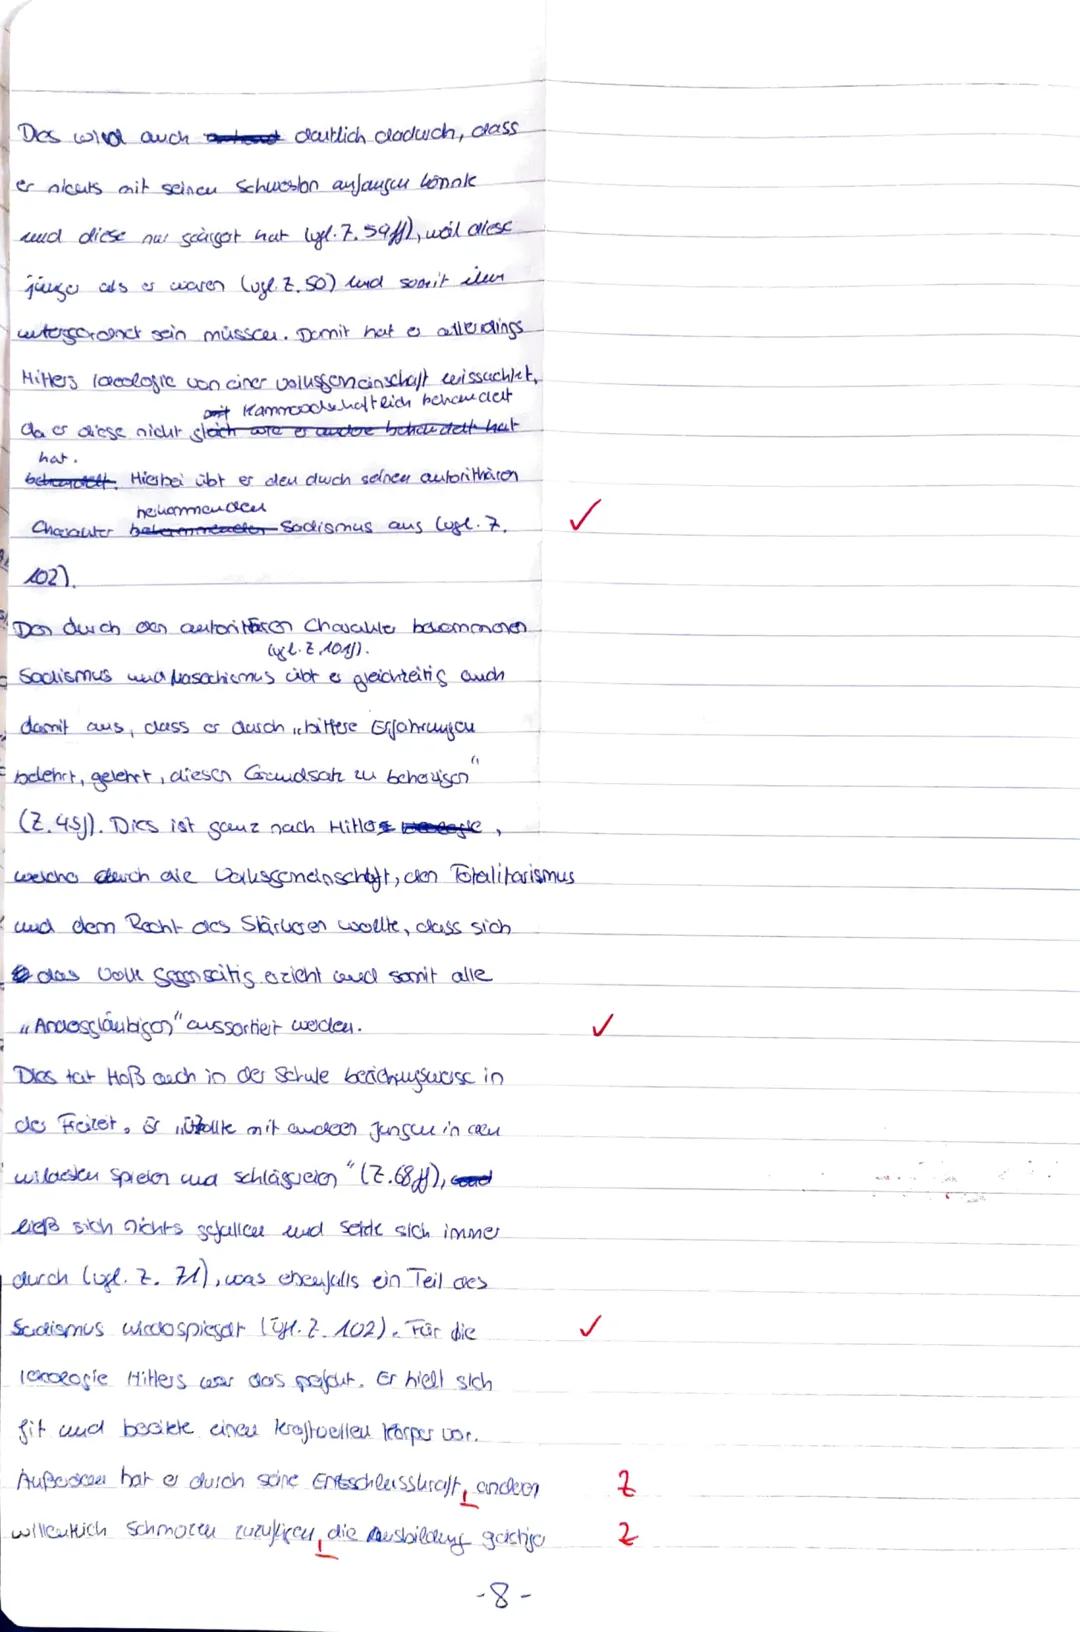 Dies wird auch deutlich dadurch, dass
er nichts mit seinen Schwestern anfangen könnte
und diese nur geärgert hat (vgl. Z. 59ff), weil diese
jünger als er waren (vgl. Z. 50) und somit ihm
untergeordnet sein müssen. Damit hat er allerdings
Hitlers Ideologie von einer Volksgemeinschaft missachtet,
kammeradschaftlich behandelt
da er diese nicht gleich wie er andere behandelt hat
hat.
behandelt. Hierbei übt er den durch seinen autoritären
bekommenden
Charakter bekommenden Sadismus aus (vgl. Z. ✓
102).
Den durch den autoritären Charakter bekommenen
(vgl. Z. 101f).
Sadismus und Masochismus übt er gleichzeitig auch
damit aus, dass er durch „bittere Erfahrungen
belehrt, gelehrt, diesen Grundsatz zu beherzigen"
(Z. 45f). Dies ist ganz nach Hitler,
welcher durch die Volksgemeinschaft, den Totalitarismus
und dem Recht des Stärkeren wollte, dass sich
das Volk gegenseitig erzieht und somit alle
„Andersgläubigen" aussortiert werden. ✓
Dies tat Höß auch in der Schule beziehungsweise in
der Freizeit. Er „tollte mit anderen Jungen in den
wildesten Spielen und Schlägereien" (Z. 68ff), und
ließ sich nichts gefallen und setzte sich immer
durch (vgl. Z. 71), was ebenfalls ein Teil des
Sadismus wiederspiegelt (vgl. Z. 102). Für die ✓
Ideologie Hitlers war das perfekt. Er hielt sich
fit und bereitete einen kraftvollen Körper vor.
Außerdem hat er durch seine Entschlusskraft, anderen Z
willentlich Schmerzen zuzufügen, die Ausbildung geistiger Z
-8-